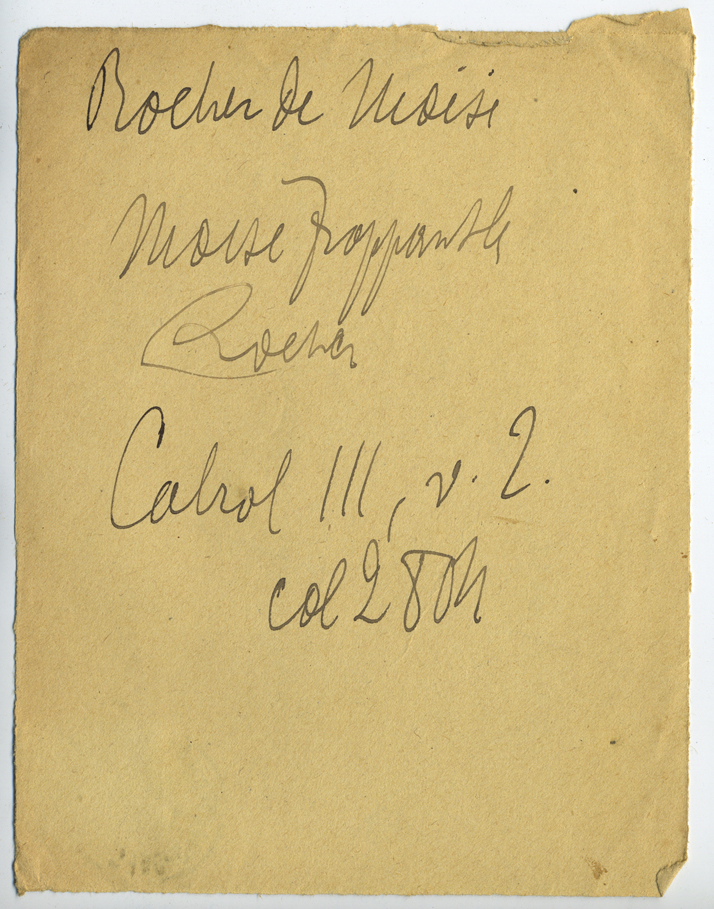 Rocher de Moïse
Moise frappant le
Rocher
Cabrol III, v. 2.
col 2804